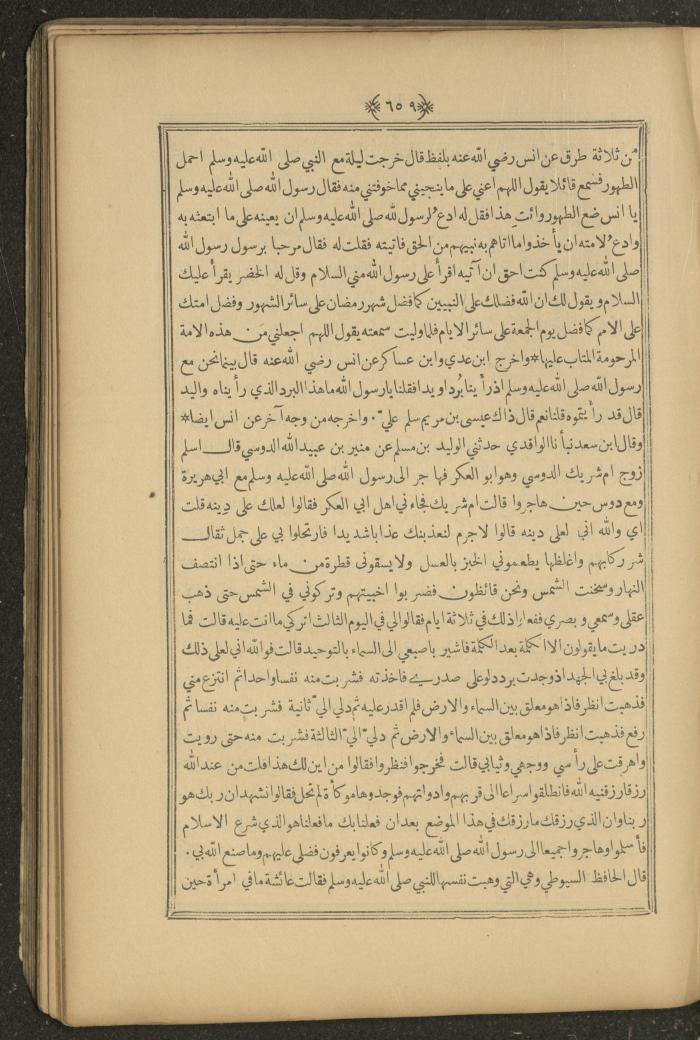 ﴿٦٥٩﴾
من ثلاثة طرق عن انس رضي الله عنه بلفظ قال خرجت ليلة مع النبي صلى الله عليه وسلم احمل
الطهور فسمع قائلا يقول اللهم اعني على ما ينجيني مما خوفتني منه فقال رسول الله صلى الله عليه وسلم
يا انس ضع الطهور وائت هذا فقل له ادع لرسول لله صلى الله عليه وسلم ان يعينه على ما ابتعثه به
وادع لامته ان يأخذوا ما اتاهم به نبيهم من الحق فاتيته فقلت له فقال مرحبا برسول رسول الله
صلى الله عليه وسلم كنت احق ان آتيه اقرأ على رسول الله مني السلام وقل له الخضر يقرأ عليك
السلام ويقول لك ان الله فضلك على النبيين كما فضل شهر رمضان على سائر الشهور وفضل امتك
على الامم كما فضل يوم الجمعة على سائر الايام فلما وليت سمعته يقول اللهم اجعلني من هذه الامة
المرحومة المتاب عليها * واخرج ابن عدي وابن عساكر عن انس رضي الله عنه قال بينما نحن مع
رسول الله صلى الله عليه وسلم اذ رأينا بُردا ويدا فقلنا يا رسول الله ما هذا البرد الذي رأيناه واليد
قال قد رأيتموه قلنا نعم قال ذاك عيسى بن مريم سلم عليّ ٠ واخرجه من وجه آخر عن انس ايضا *
وقال ابن سعد نبأنا الواقدي حدثني الوليد بن مسلم عن منير بن عبيد الله الدوسي قال اسلم
زوج ام شريك الدوسي وهو ابو العكر فهاجر الى رسول الله صلى الله عليه وسلم مع ابي هريرة
ومع دوس حين هاجروا قالت ام شريك فجاءني اهل ابي العكر فقالوا لعلك على دينه قلت
اي والله اني لعلى دينه قالوا لاجرم لنعذبنك عذابا شديدا فارتحلوا بي على جمل ثقال
شر ركابهم واغلظها يطعموني الخبز بالعسل ولا يسقوني قطرة من ماء حتى اذا انتصف
النهار وسخنت الشمس ونحن قائظون فضربوا اخبيتهم وتركوني في الشمس حتى ذهب
عقلي وسمعي وبصري ففعلوا ذلك في ثلاثة ايام فقالوا لي في اليوم الثالث اتركي ما انت عليه قالت فما
دريت ما يقولون الا الكلمة بعد الكلمة فاشير باصبعي الى السماء بالتوحيد قالت فوالله اني لعلى ذلك
وقد بلغ بي الجهد اذ وجدت برد دلو على صدري فاخذته فشربت منه نفسا واحدا ثم انتزع مني
فذهبت انظر فاذا هو معلق بين السماء والارض فلم اقدر عليه ثم دلي اليّ ثانية فشربت منه نفسا ثم
رفع فذهبت انظر فاذا هو معلق بين السماء والارض ثم دلي اليّ الثالثة فشربت منه حتى رويت
واهرقت على رأسي ووجهي وثيابي قالت فخرجوا فنظروا فقالوا من اين لك هذا قلت من عند الله
رزقا رزقنيه الله فانطلقوا سراعا الى قربهم وادواتهم فوجدوها موكأة لم تحل فقالوا نشهد ان ربك هو
ربنا وان الذي رزقك ما رزقك في هذا الموضع بعد ان فعلنا بك ما فعلنا هو الذي شرع الاسلام
فأسلموا وهاجروا جميعا الى رسول الله صلى الله عليه وسلم وكانوا يعرفون فضلي عليهم وما صنع الله بي .
قال الحافظ السيوطي وهي التي وهبت نفسها للنبي صلى الله عليه وسلم فقالت عائشة ما في امرأة حين